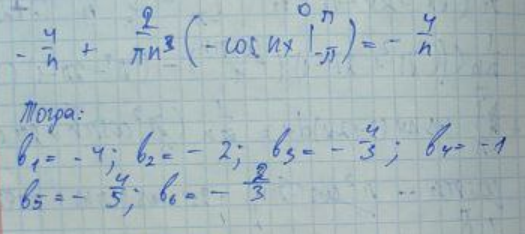 - 4/n + 2/πn³ (- cos nx |₋π^π) = - 4/n 0
Тогда:
b₁ = - 4; b₂ = - 2; b₃ = - 4/3; b₄ = - 1
b₅ = - 4/5; b₆ = - 2/3 ...